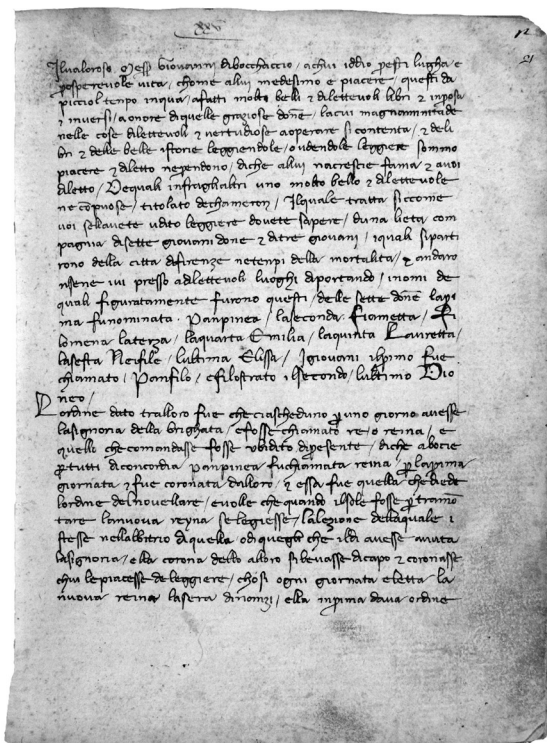 xxv
Ilvaloroso Mess Giovanni dibocchaccio, achui iddio presti lungha e
prosperevole vita, chome allui medesimo e piacere, questi da
picciol tenpo inqua, afatti molto belli & dilettevoli libri & inprosa
& inversi, aonore diquelle graziose done, lacui magnanimita de
nelle cose dilettevoli & vertudiose aoperare si contenta, & deli
bri & delle belle istorie leggiendole, oudendole leggiere sommo
piacere & diletto neprendono, diche allui nacrescie fama & avoi
diletto, Dequali infraglialtri uno molto bello & dilettevole
ne conpuose, titolato dechameron, Ilquale tratta siccome
voi selavete udito leggiere dovete sapere, duna lieta com
pagnia disette giovani done & ditre giovani, iquali siparti
rono della citta difirenze netenpi della mortalita, & andaro
nsene ivi presso adilettevoli luoghi diportando, inomi de
quali figuratamente furono questi, delle sette done lapri
ma funominata. Panpinea, laseconda. Fiametta, Fi
lomena laterza, laquarta Emilia, laquinta Lauretta,
lasesta Neifile, lultima Elissa, Igiovani ilprimo fue
chiamato, Panfilo, efilostrato ilsecondo, lultimo Dio
neo,
Lordine dato tralloro fue checiascheduno per uno giorno avesse
lasignoria della brighata, efosse chiamato re, o reina, e
quello checomandasse fosse ubidito dipresente, diche abocie
per tutti diconcordia panpinea fuchiamata reina per laprima
giornata & fue coronata dalloro, & essa fue quella chediede
lordine delnovellare, evolle chequando ilsole fosse per tramo
tare lanuova reyna seleggiesse, lalezione dellaquale i
stesse nellalbitrio diquella odiquegli che ildi avesse avuta
lasignoria, ella corona dello alloro silevasse dicapo & coronasse
chui lepiacesse deleggiere, chosi ogni giornata eletta la
nuova reina lasera dinanzi, ella inprima dava ordine